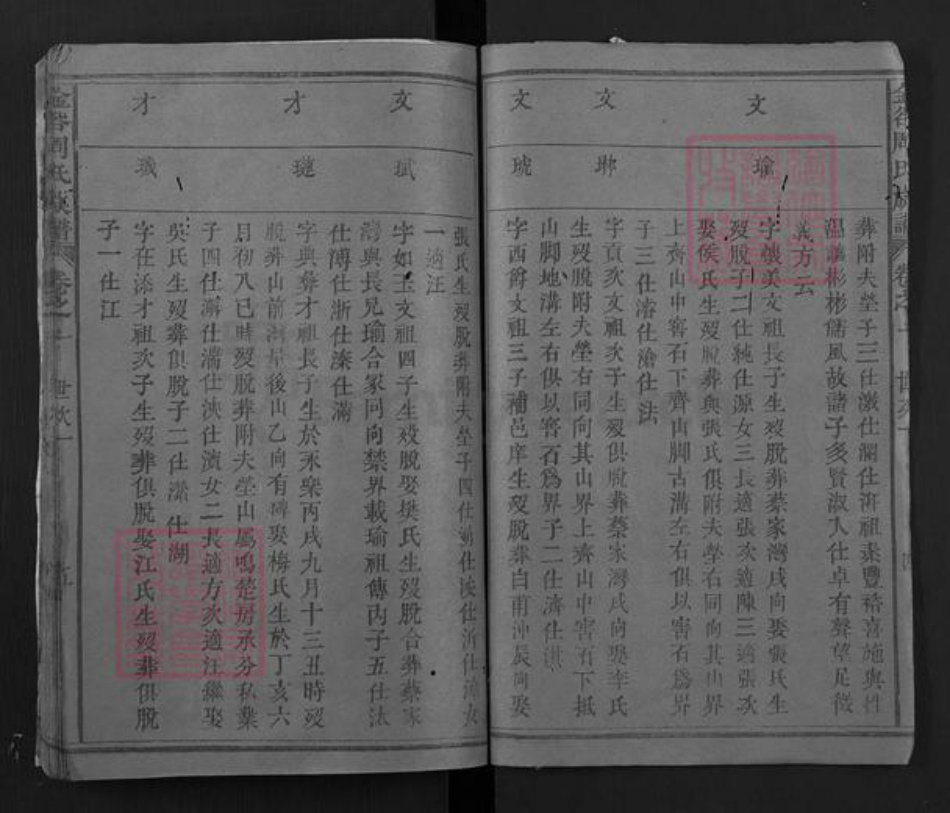 葬附夫塋子三仕瀛仕瀾仕淠祖素豐裕喜施與性
溫讓彬彬儒風故諸子多賢淑人仕卓有聲望足徵
義方云
文
瑜
字懷美文祖長子生歿脫葬蔡家灣戌向娶張氏生
歿脫子二仕純仕源女三長適張次適陳三適張次
娶侯氏生歿脫葬與張氏俱附夫塋右同向其山界
上齊山中窖石下齊山脚古溝左右俱以窖石爲界
子三仕濬仕滄仕法
文
字貢次文祖次子生歿俱脫葬蔡家灣戌向娶李氏
生歿脫附夫塋右同向其山界上齊山中窖石下抵
山脚地溝左右俱以窖石爲界子二仕濟仕淇
文
琥
字西爵文祖三子補邑庠生歿脫葬白甫沖辰向娶
張氏生歿脫葬附夫塋子四仕 仕 仕沂仕 女
一適汪
文
斌
字如玉文祖四子生歿脫娶樊氏生歿脫合葬蔡家
灣與長兄瑜合冢同向禁界載瑜祖傳內子五仕汰
仕溥仕浙仕溱仕滿
才
璉
字典彝才祖長子生於永樂丙戌九月十三丑時歿
脫葬山前湖星後山乙向有碑娶梅氏生於丁亥六
月初八巳時歿脫葬附夫塋山屬鳴楚房承分私業
子四仕澥仕 仕浹仕濱女二長適方次適汪繼娶
吳氏生歿葬俱脫子二仕瀠仕湖
才
璣
字在添才祖次子生歿葬俱脫娶江氏生歿葬俱脫
子一仕江